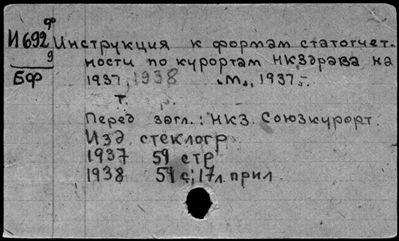 ф
И692 Инструкция к формам статотчет-
9 ности по курортам НКЗдрава на
БФ 1937, 1938 .М., 1937-.
т.
Перед загл.: НКЗ. Союзкурорт.
Изд. стеклогр
1937 59 стр
1938 51 с; 17л. прил.